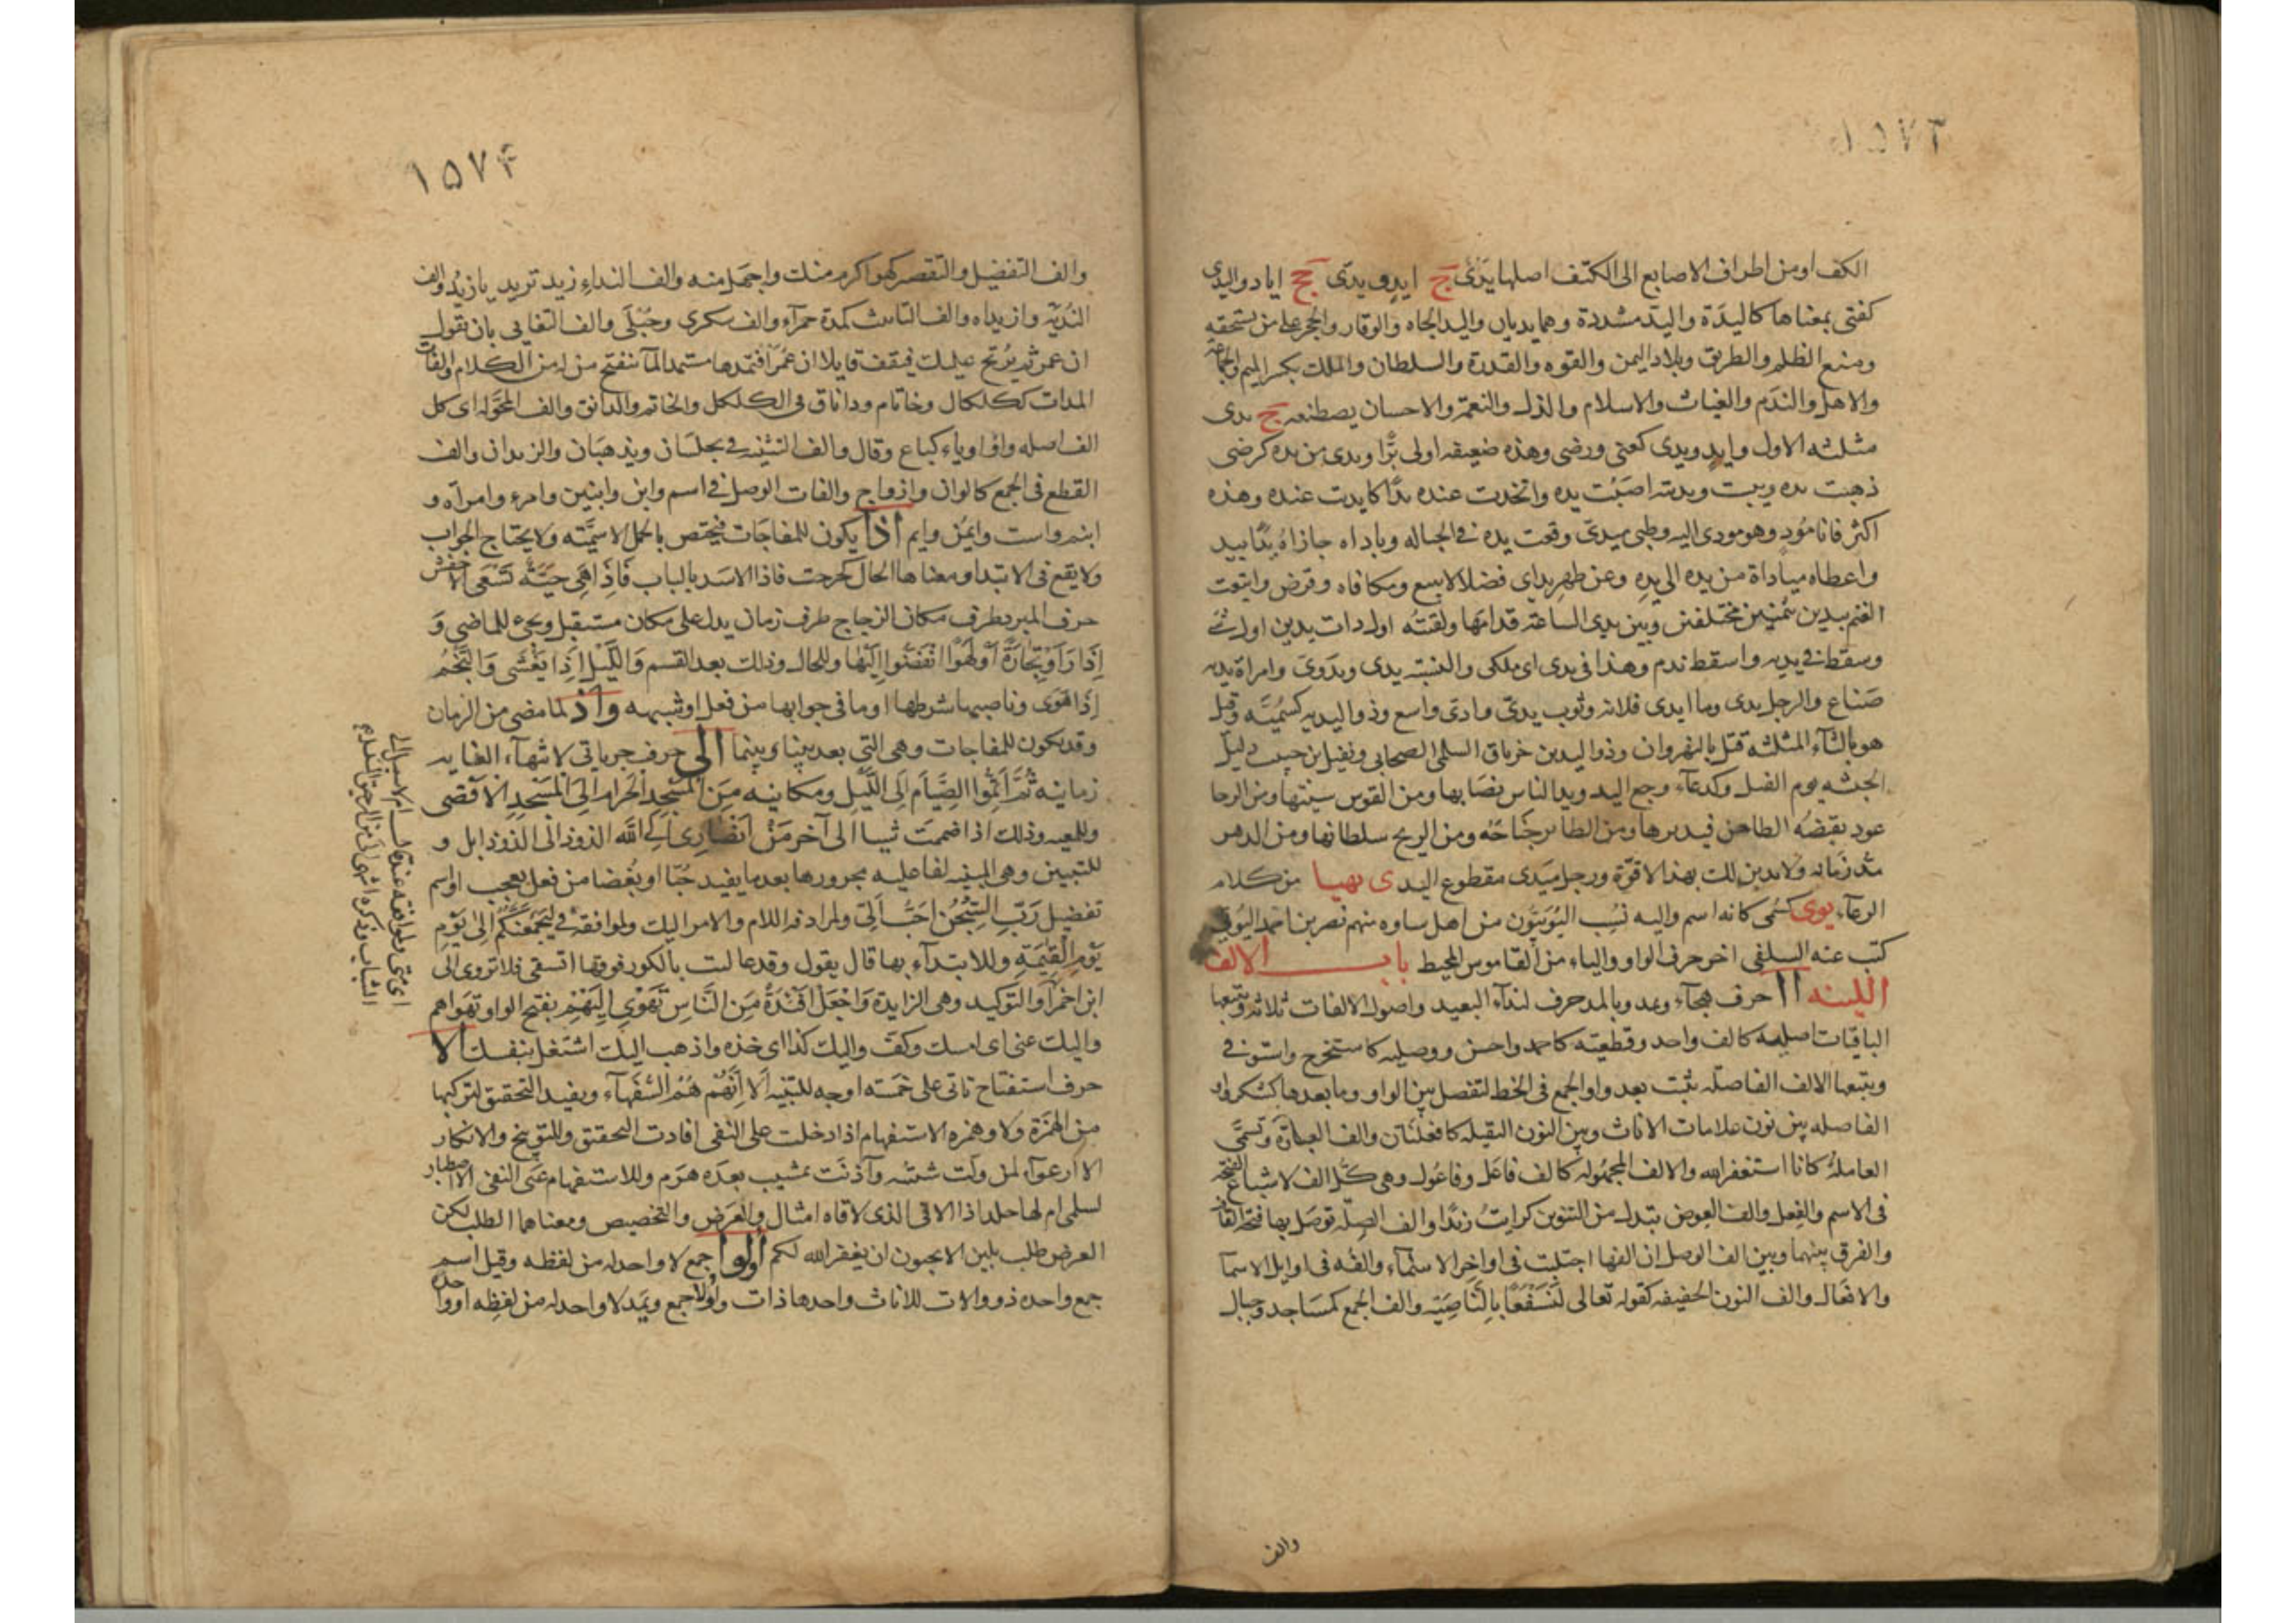 ١٥٧٣
الكف اومن اطراف الاصابع الى الكتف اصلها يدَىٌ ج ايدٍ ويدىّ جج اياد واليدى
كفتى بمعناها كاليدَة واليدّ مشددة وهما يديان واليد الجاه والوقار والحجر على من يستحقه
ومنع الظلم والطريق وبلاد اليمن والقوه والقدرة والسلطان والملك بكسر الميم والجماعة
والاهل والندَم والغياث والاسلام والذل والنعمة والاحسان يصطنعه ج يدى
مثلثه الاول وايدٍ ويدى كعنى ورضى وهذه ضعيفه اولى برًّا ويدى من يده كرضى
ذهبت يده ويبست ويديته اصَبْت يده واتخذت عنده يدًا كايديت عنده وهذه
اكثر فانا مُودٍ وهو مودى اليه وظبى ميدىّ وقعت يده فى الحباله وياداه جازاهُ يدًا بيد
واعطاه مياداة من يده الى يدِه وعن ظهر يد اى فضلا لا ببيع ومكافاه وقرض وابتعت
الغنم بيدين بثمنين مختلفين وبين يدى الساعة قدامها ولقيته اول ذات يدين اول شئ
وسقط فى يديه واسقط ندم وهذا فى يدى اى ملكى والنسبة يدى ويدَوىّ وامراة يديه
صَناع والرجل يدى وما ايدى فلانه وثوب يدىّ وادىّ واسع وذو اليديه كسُميَّه وقيل
هو بالثآء المثلثه قتل بالنهروان وذو اليدين خرباق السلمى الصحابى ونفيل بن حبيب دليل
الحبشه يوم الفيل وكدعآء وجع اليد ويد الفاس نصَابها ومن القوس سيتها ومن الرحا
عود يقبضه الطاحن فيديرها ومن الطاير جناحُه ومن الريح سلطانها ومن الدهر
مدّ زمانه ولا يدين لك بهذا لا قوّة ورجل ميَدى مقطوع اليد ى يهيا من كلام
الرعآء يوى كسُمى كانه اسم واليه نسُب اليُوَيّيُون من اهل ساوه منهم نصر بن احمد اليُوَيّى
كتب عنه السلفى اخر حرف الواو والياء من القاموس المحيط باب الالف
اللينه آا حرف هجآء ويمد وبالمد حرف لندآء البعيد واصول الالفات ثلاثه ويتبعها
الباقيات اصليه كالف واحد وقطعيّه كاحمد واحسن ووصليه كاستخرج واستوفى
ويتبعها الالف الفاصلّه تثبت بعد واو الجمع فى الخط لتفصل بين الواو وما بعدها كشكروا و
الفاصله بين نون علامات الاناث وبين النون الثقيله كافعلنَان والف العبارَة وتسمّى
العاملهُ كانا استغفر الله والالف المجهُوله كالف فاعَل وفاعُول وهى كُّل الف لاشباع الفتحة
فى الاسم والفعل والف العِوض تبدل من التنوين كرايتُ زيدًا والف الصِلّه توصَل بها فتحة القافية
والفرق بينهما وبين الف الوصل ان الفها اجتلبت فى اواخر الاسمآء والفه فى اوايل الاسمآ
والافعَال والف النون الخفيفه كقوله تعالى لَنَسْفَعًا بِالنَّاصِيَة والف الجمع كمسَاجد وجبال
والف
١٥٧۴
والف التفضيل والتقصير كهو اكرم منك واجهَل منه والف النداءِ زيد تريد يا زيدُ والف
النُدبّة وازيداه والف التانيث كمدة حمرآء والف سكرى وحُبْلَى والف التعايى بان تقول
ان عمر ثم يُرتج عليك فيقف قايلا ان عُمَرَا فتمدها مستمدا لما ينفتح من له من الكلام والفات
المدات ككلكال وخاتام وداناق فى الكلكل والخاتم والدانق والف المحوَّله اى كل
الف اصله واو او ياء كباع وقال والف التثنيه فى يجلسَان ويذهبَان والزيدان والف
القطع فى الجمع كالوان وازواج والفات الوصل فى اسم وابن وابنين وامرء وامرآه و
ابنم واست وايمُن وايم اذا يكون للمفاجَات فيختص بالجمل الاسمِيَّه ولا يحتاج لجواب
ولا يقع فى الابتدا ومعناها الحال كخرجت فاذا الاسَد بالباب فَاِذَا هِىَ حَيَّةٌ تَسْعَى الاخفش
حرف المبرد ظرف مكان الزجاج ظرف زمان يدل على مكان مستقبل ويجىء للماضى وَ
اِذَا رَاَوْ تِجَارَةً اَوْ لَهْوًا انْفَضُّوا اِلَيْهَا وللحال وذلك بعد القسم وَاللَّيْلِ اِذَا يَغْشَى وَالنَّجْمِ
اِذَا هَوَى وناصبها شرطها او ما فى جوابها من فعل او شبهه واذ لما مضى من الزمان
وقد يكون للمفاجات وهى التى بعد بينا وبينما الى حرف جر ياتى لانتهآء الغايه
زمانيه ثُمَّ اَتِمُّوا الصِّيَامَ اِلَى اللَّيْلِ ومكانيه مِنَ الْمَسْجِدِ الْحَرَامِ اِلَى الْمَسْجِدِ الاَقْصَى
وللمعيه وذلك اذا ضممت شيا الى آخر مَنْ اَنْصَارِى اِلَى اللّه الذود الى الذود ابل و
للتبيين وهى المبينه لفاعليه مجرورها بعد ما يفيد حُبّا او بُغضا من فعل تعجب او اسم
تفضيل رَبِّ السِّجْنُ اَحَبُّ اِلَىَّ ولمرادفه اللام والامر اليك ولموافقه فى لَيَجْمَعَنَّكُمْ اِلى يَوْمِ
يَوْمِ القِيمَةِ وللابتدآء بها قال يقول وقد عاليت بالكور فوقها ا تسقى فلا تروى الى
ابن احمَرا وللتوكيد وهى الزايدة فَاجْعَلْ اَفْئِدَةً مِنَ النَّاسِ تَهْوَى اِلَيْهِمْ بفتح الواو تهوَاهم
واليك عنى اى امسك وكفّ واليك كذا اى خذه واذهب اليك اشتغل بنفسك الا
حرف استفتاح تاتى على خمَسه اوجه للتنبيه اَلَا اِنَّهُمْ هُمُ السُّفَهَآء ويفيد التحقيق لتركبها
من الهمزَة ولا وهمزه الاستفهام اذا دخلت على النفى افادت التحقيق وللتوبيخ والانكار
الا ارعوآء لمن ولّت شبيبته وآذنَت بمشيب بعدَه هرَم وللاستفهام عَن النفى الا اصطبار
لسلمى ام لها جلد اذا الاقى الذى لاقاه امثالى وللعرَض والتخصيص ومعناهما الطلب لكن
العرض طلب بلين الا تحبون ان يغفر الله لكم اُولوا جمع لا واحد له من لفظه وقيل اسم
جمع واحده ذو والات للاناث واحدها ذات واُولا جمع ويَمد لا واحد له من لفظِه او واحده